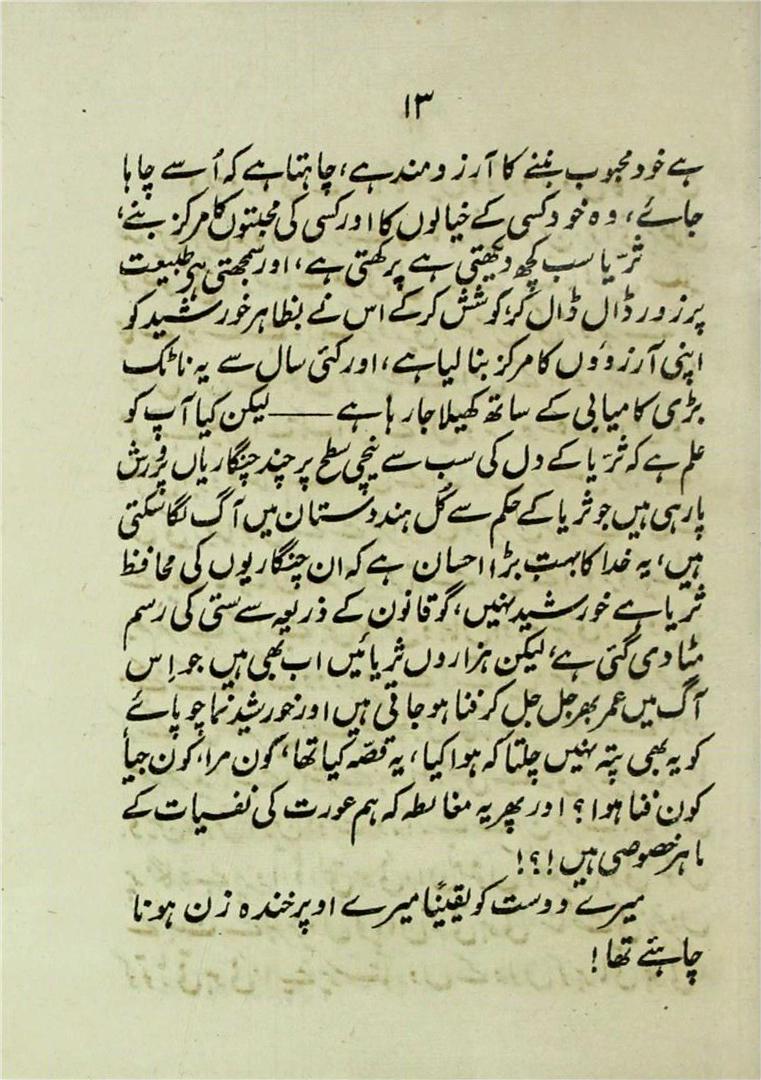 ۱۳
ہے خود محبوب بننے کا آرزو مند ہے، چاہتا ہے کہ اُسے چاہا
جائے، وہ خود کسی کے خیالوں کا اور کسی کی محبتوں کا مرکز بنے،
ثریّا سب کچھ دیکھتی ہے پرکھتی ہے، اور سمجھتی ہی طبیعت
پر زور ڈال ڈال کر، کوشش کرکے اس نے بظاہر خورشید کو
اپنی آرزوؤں کا مرکز بنا لیا ہے، اور کئی سال سے یہ ناٹک
بڑی کامیابی کے ساتھ کھیلا جا رہا ہے —— لیکن کیا آپ کو
علم ہے کہ ثریّا کے دل کی سب سے نیچی سطح پر چند چنگاریاں پرورش
پا رہی ہیں جو ثریا کے حکم سے کُل ہندوستان میں آگ لگا سکتی
ہیں، یہ خدا کا بہت بڑا احسان ہے کہ ان چنگاریوں کی محافظ
ثریا ہے خورشید نہیں، گو قانون کے ذریعہ سے ستی کی رسم
مٹا دی گئی ہے، لیکن ہزاروں ثریائیں اب بھی ہیں جو اِس
آگ میں عمر بھر جل جل کر فنا ہو جاتی ہیں اور خورشید نما چوپائے
کو یہ بھی پتہ نہیں چلتا کہ ہوا کیا، یہ قصّہ کیا تھا، کون مرا، کون جیا
کون فنا ہوا؟ اور پھر یہ مغالطہ کہ ہم عورت کی نفسیات کے
ماہر خصوصی ہیں!؟!
میرے دوست کو یقیناً میرے اوپر خندہ زن ہونا
چاہئے تھا!